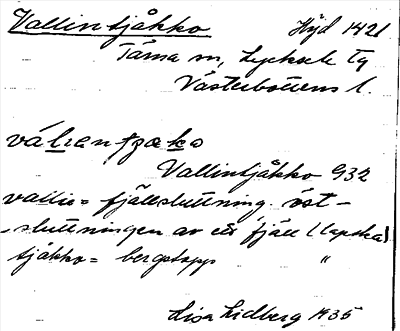 Vallintjåkko Höjd 1421
Tärna sn, Lycksele tg
Västerbottens l.
Vallintjåkko 932
valli = fjällsluttning. öst-
-sluttningen av ett fjäll (lapska)
tjåkko = bergstopp "
Lisa Lidberg 1935